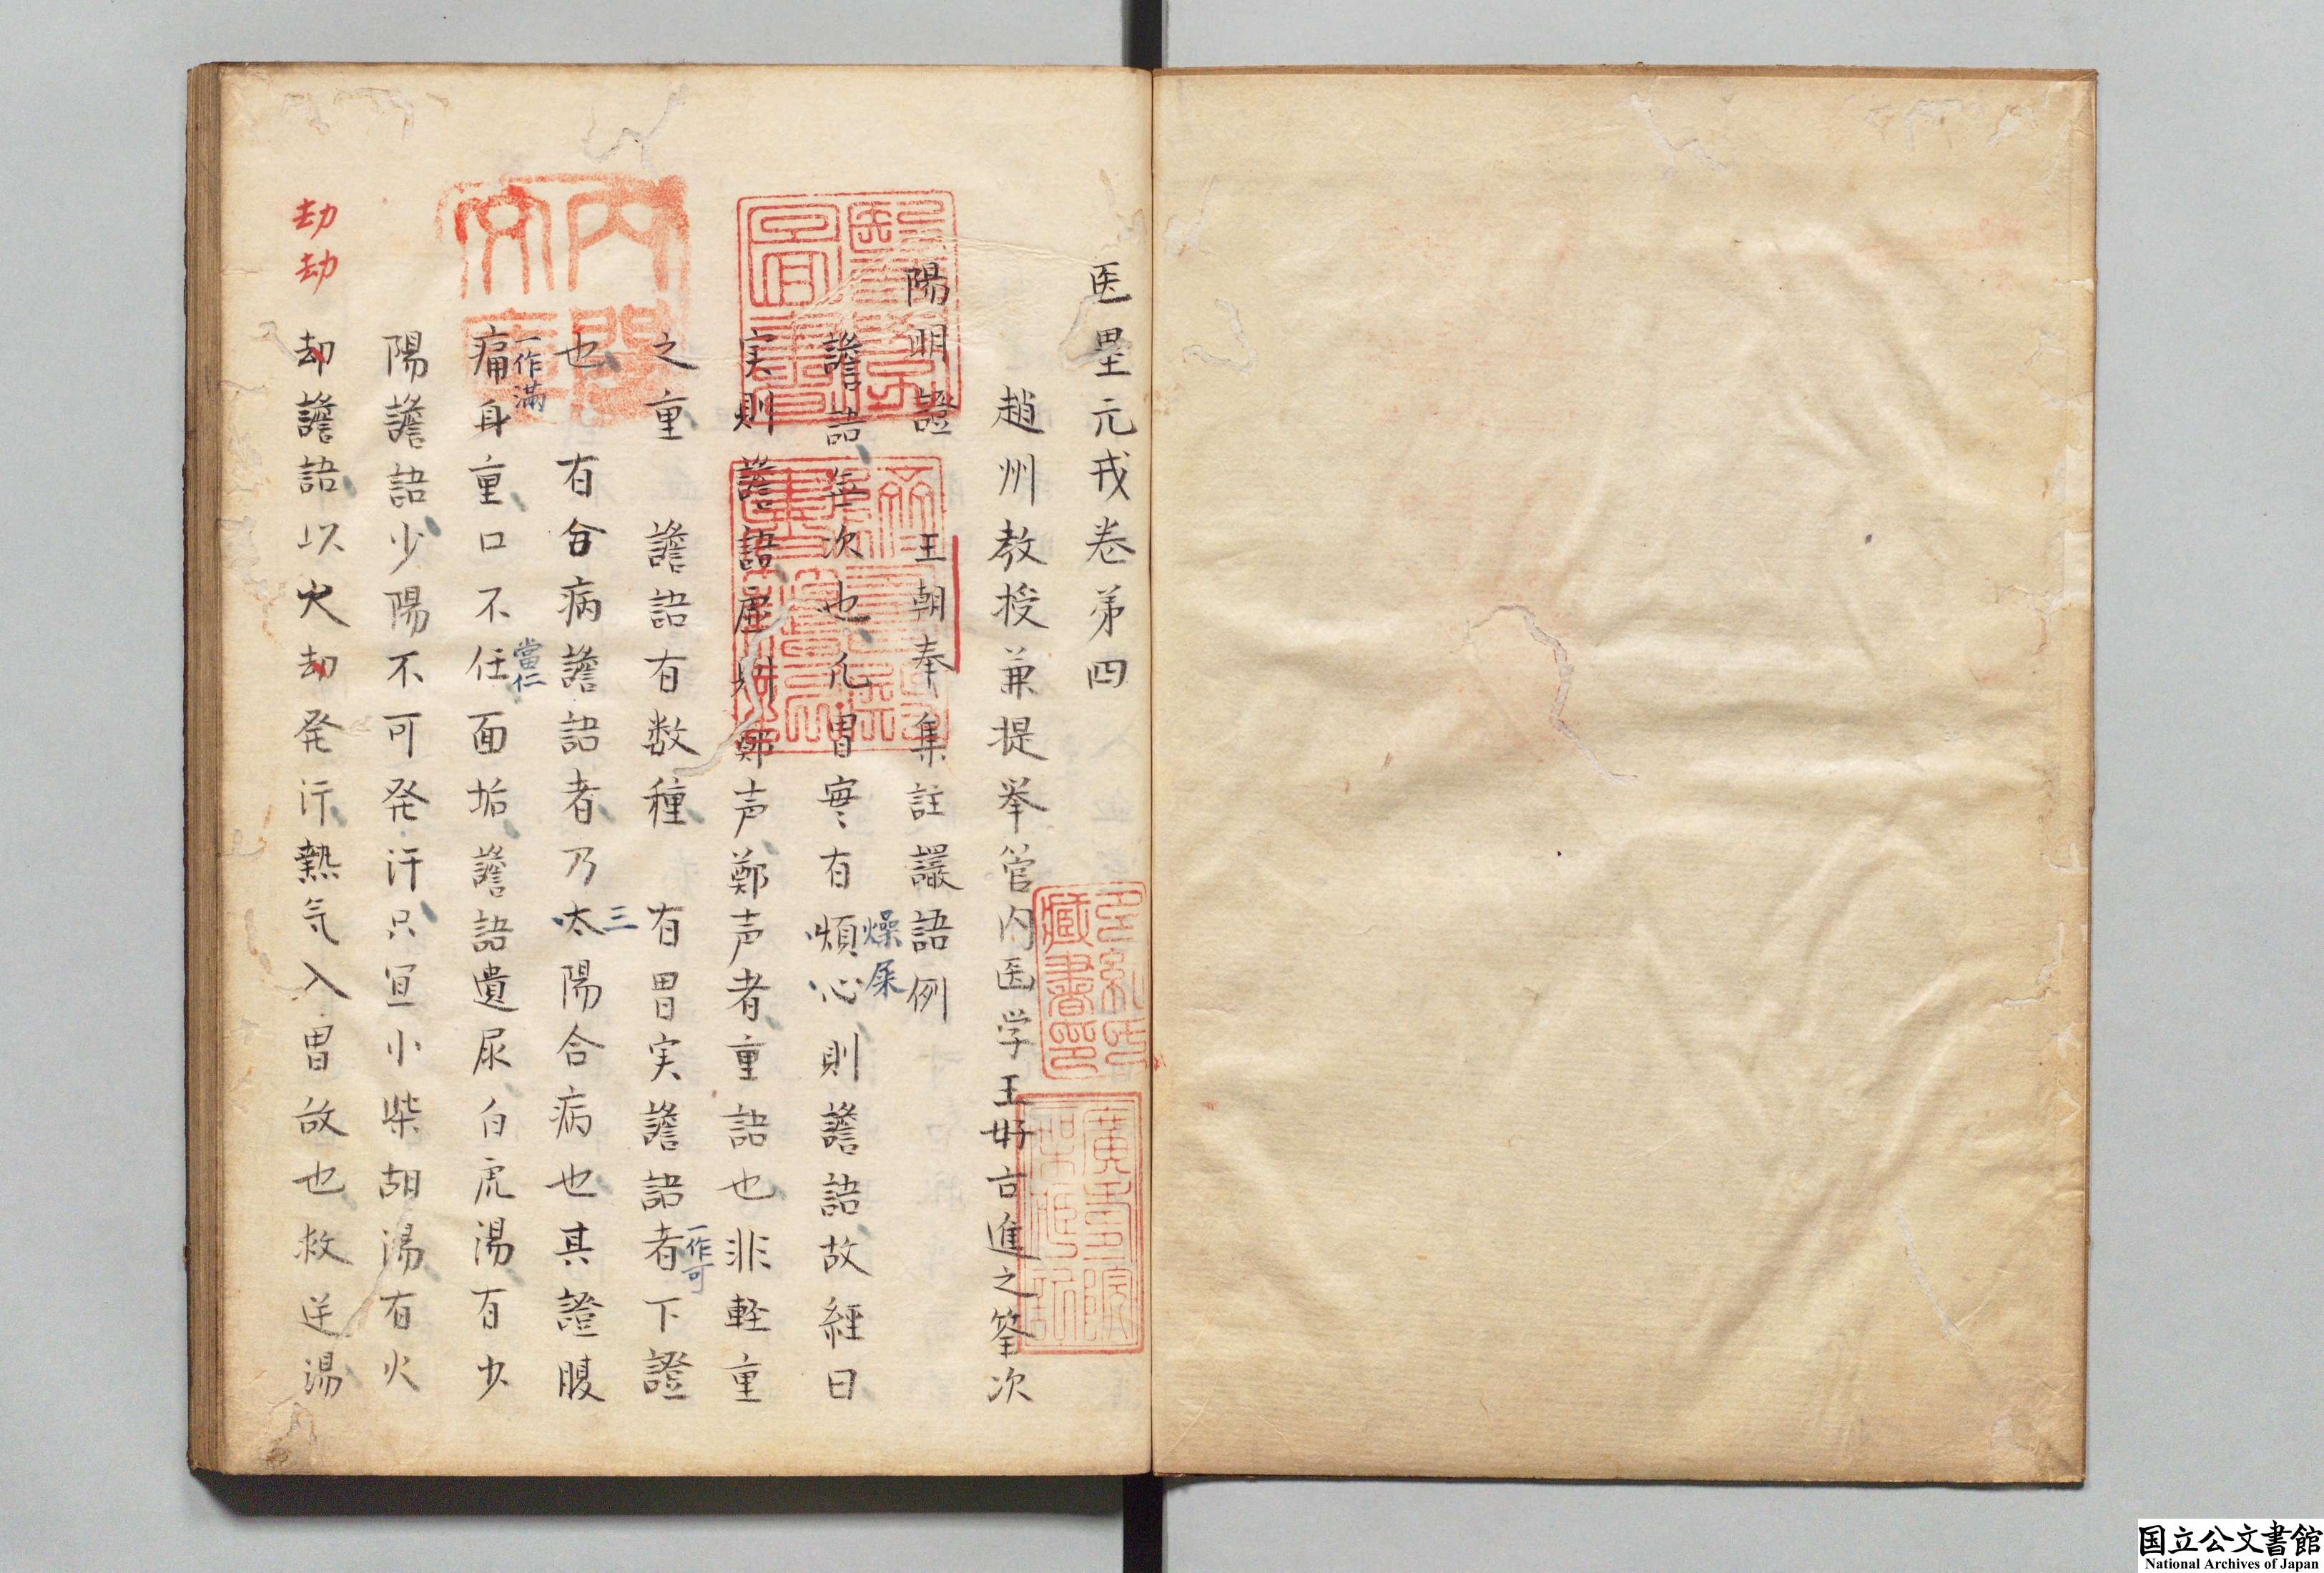 医塁元戎巻第四
趙州教授兼提挙管内医学王好古進之筌次
陽明證 王朝奉集註讝語例
譫語無次也凡胃実有煩心則譫語故経曰
燥屎
実則譫語虚則鄭声鄭声者重語也非軽重
之重 譫語有数種 有胃実譫語者下證
一作可
也有合病譫語者乃太陽合病也其證腹
三
痛身重口不任面垢譫語遺尿白虎湯有少
一作滿
當仁
陽譫語少陽不可発汗只宜小柴胡湯有火
却譫語以火却発汗熱気入胃故也救逆湯
劫劫
内閣文庫
醫學圖書
躋壽殿書籍記
多紀氏藏書印
廣壽院架藏記
国立公文書館
National Archives of Japan